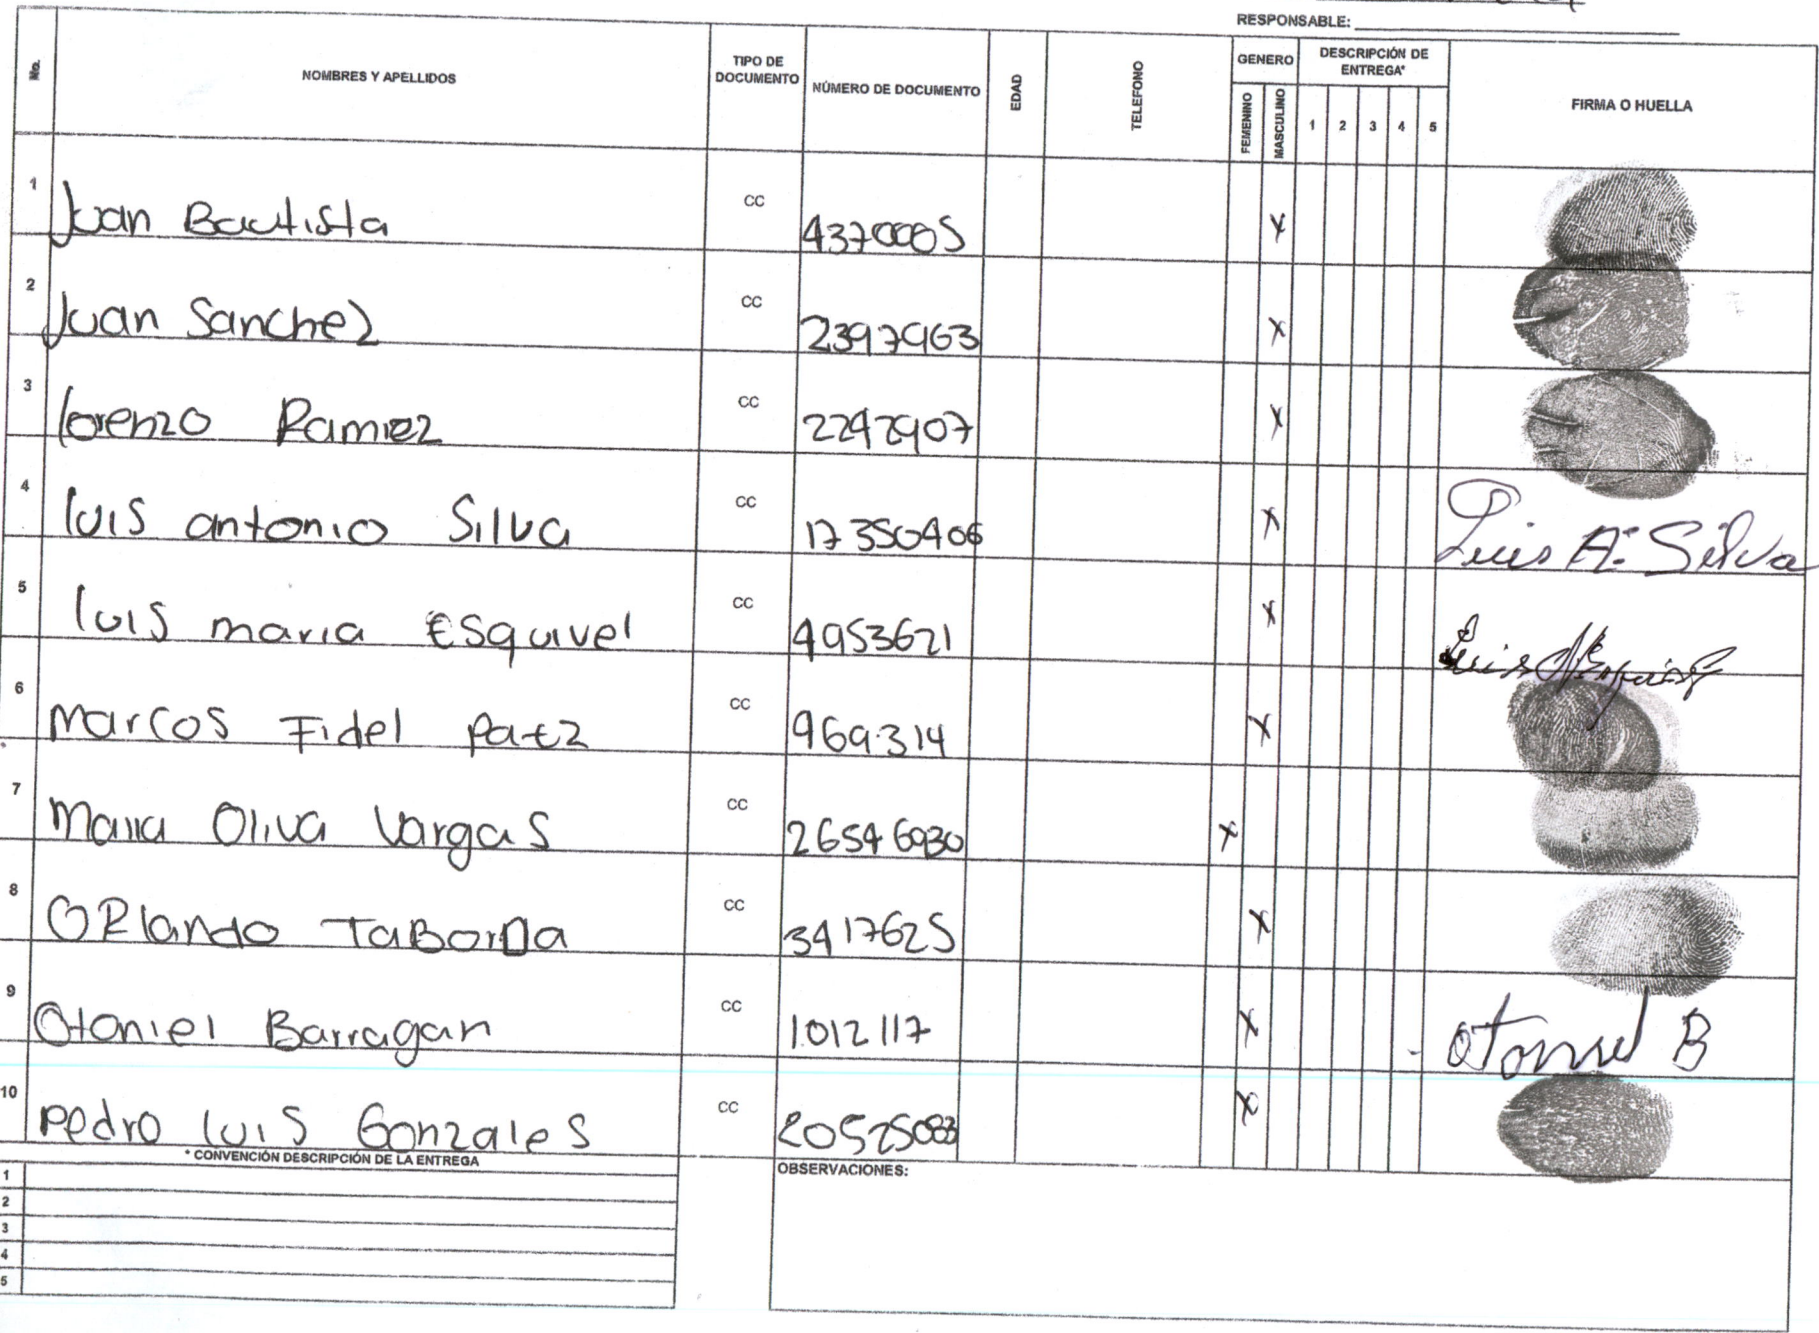 RESPONSABLE:
No. NOMBRES Y APELLIDOS TIPO DE DOCUMENTO NÚMERO DE DOCUMENTO EDAD TELEFONO GENERO FEMENINO MASCULINO DESCRIPCIÓN DE ENTREGA* 1 2 3 4 5 FIRMA O HUELLA
1 Juan Bautista CC 4370005 X
2 Juan Sanchez CC 2397963 X
3 lorenzo Ramirez CC 2242907 X
4 luis antonio Silva CC 17350406 X Luis A. Silva
5 luis maria Esquivel CC 4953621 X
6 marcos Fidel paez CC 969314 X
7 maria Oliva Vargas CC 26546930 X
8 ORlando TaBorDa CC 3417625 X
9 Otoniel Barragan CC 1012117 X otoniel B
10 pedro luis Gonzales CC 20525083 X
* CONVENCIÓN DESCRIPCIÓN DE LA ENTREGA
OBSERVACIONES:
1
2
3
4
5